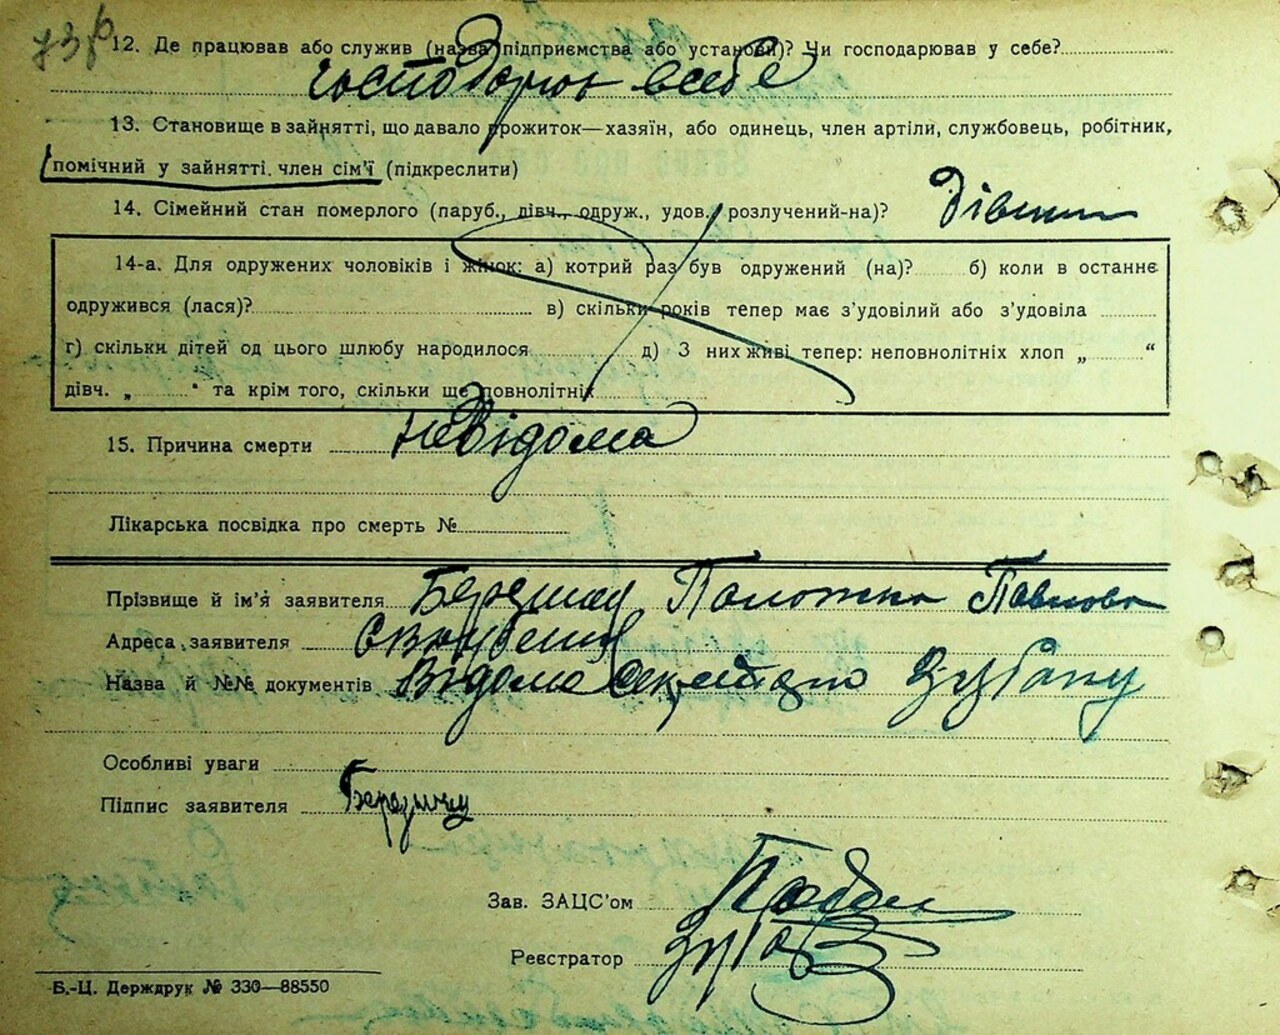 73
12. Де працював або служив (назва підприємства або установи)? Чи господарював у себе?
господарює в себе
13. Становище в зайнятті, що давало прожиток—хазяїн, або одинець, член артіли, службовець, робітник,
помічний у зайнятті. член сім'ї (підкреслити)
14. Сімейний стан померлого (паруб., дівч., одруж., удов., розлучений-на)? дівчина
14-а. Для одружених чоловіків і жінок: а) котрий раз був одружений (на)? б) коли в останнє
одружився (лася)? в) скільки років тепер має з'удовілий або з'удовіла
г) скільки дітей од цього шлюбу народилося д) З них живі тепер: неповнолітніх хлоп „ “
дівч. „ “ та крім того, скільки ще повнолітніх
15. Причина смерти невідома
Лікарська посвідка про смерть №
Прізвище й ім'я заявителя Павловна
Адреса заявителя
Назва й №№ документів Відома
Особливі уваги
Підпис заявителя
Зав. ЗАЦС'ом
Реєстратор
Б.-Ц. Держдрук № 330—88550